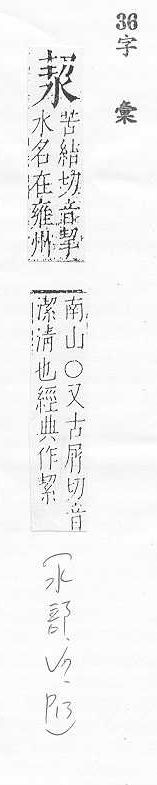 36 字彙
洯
苦結切音挈
水名在雍州
南山○又古屑切音
潔清也經典作絜
(水部.V7.P13)